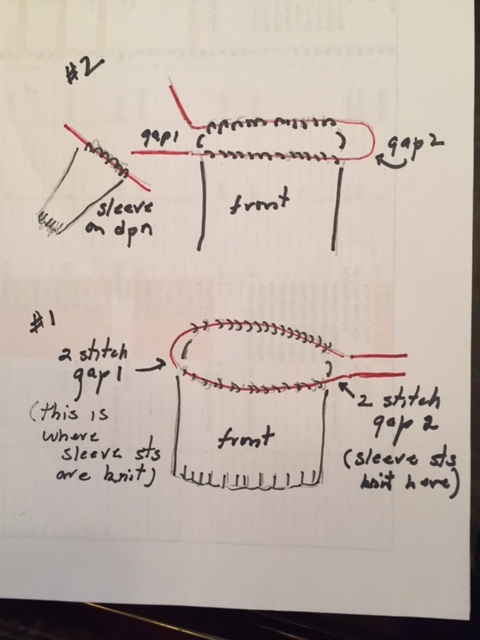 #2
gap1
gap2
front
sleeve
on dpn
#1
2 stitch
gap 1
(this is
where
sleeve sts
are knit)
front
2 stitch
gap 2
(sleeve sts
knit here)